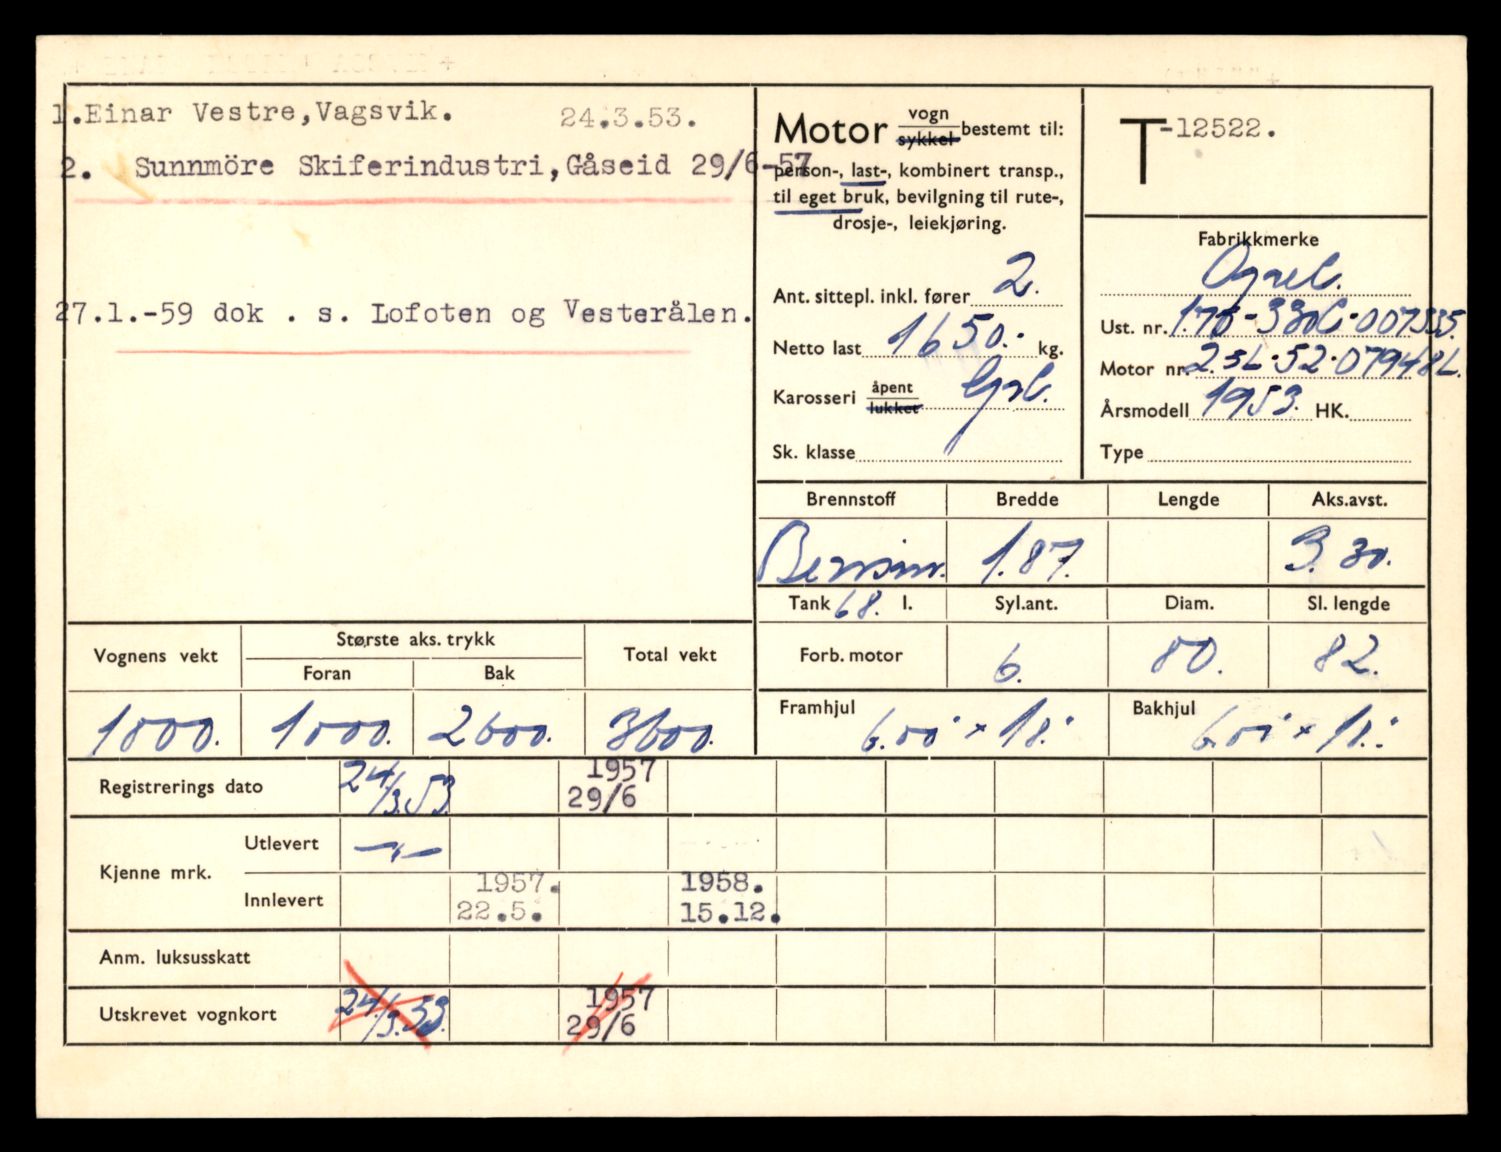 1.Einar Vestre,Vagsvik. 24.3.53.
2. Sunnmöre Skiferindustri,Gåseid 29/6-57
27.1.-59 dok . s. Lofoten og Vesterålen.
Motor vogn sykkel bestemt til:
person-, last-, kombinert transp.,
til eget bruk, bevilgning til rute-,
drosje-, leiekjøring.
Ant. sittepl. inkl. fører 2.
Netto last 1650.- kg.
Karosseri åpent lukket
Sk. klasse
T-12522.
Fabrikkmerke
Opel.
Ust. nr.
Motor nr.
Årsmodell 1953. HK.
Type
Brennstoff Bredde Lengde Aks.avst.
Bensin. 1.87. 3.30.
Tank 68. l. Syl.ant. Diam. Sl. lengde
Forb. motor 6. 80. 82.
Framhjul Bakhjul
Vognens vekt Største aks. trykk Total vekt
Foran Bak
1000. 2600. 3600.
Registrerings dato 24/3.53 1957 29/6
Kjenne mrk. Utlevert -"-
Innlevert 1957. 22.5. 1958. 15.12.
Anm. luksusskatt
Utskrevet vognkort 24/3.53. 1957 29/6